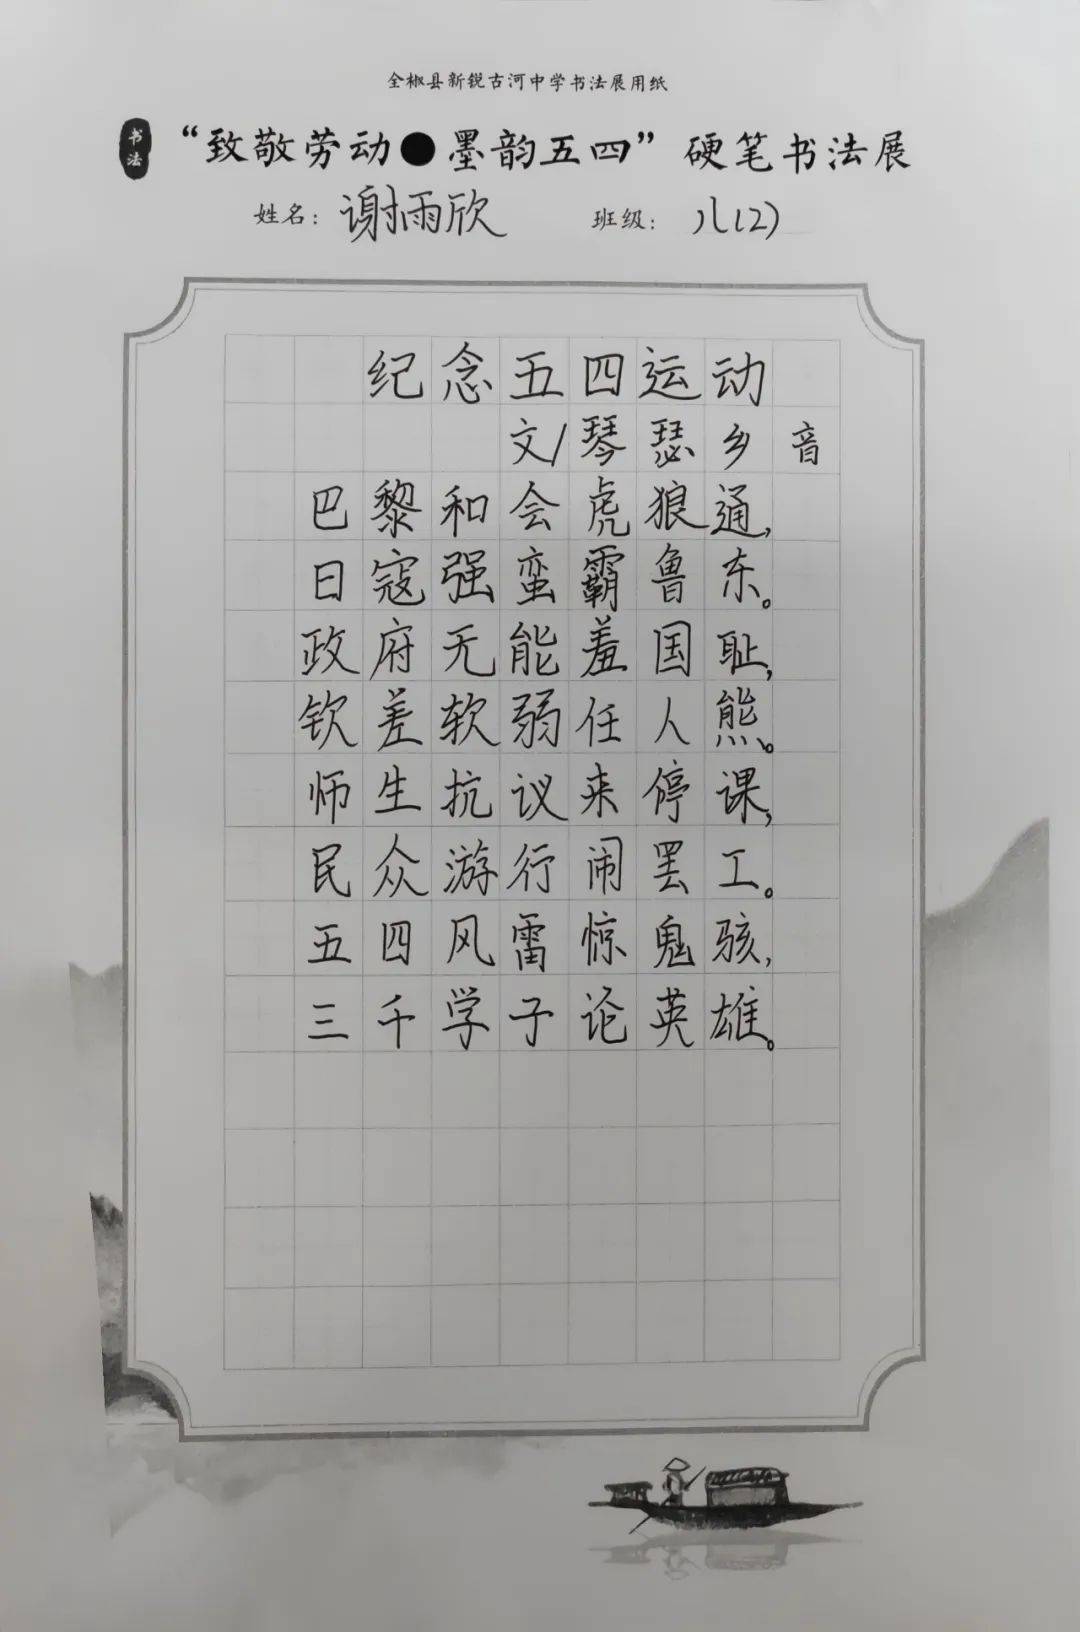 全椒县新锐古河中学书法展用纸
书法
“致敬劳动●墨韵五四”硬笔书法展
姓名：谢雨欣 班级：八(2)
纪念五四运动
文/琴瑟乡音
巴黎和会虎狼通,
日寇强蛮霸鲁东。
政府无能羞国耻,
钦差软弱任人熊。
师生抗议来停课,
民众游行闹罢工。
五四风雷惊鬼骇,
三千学子论英雄。